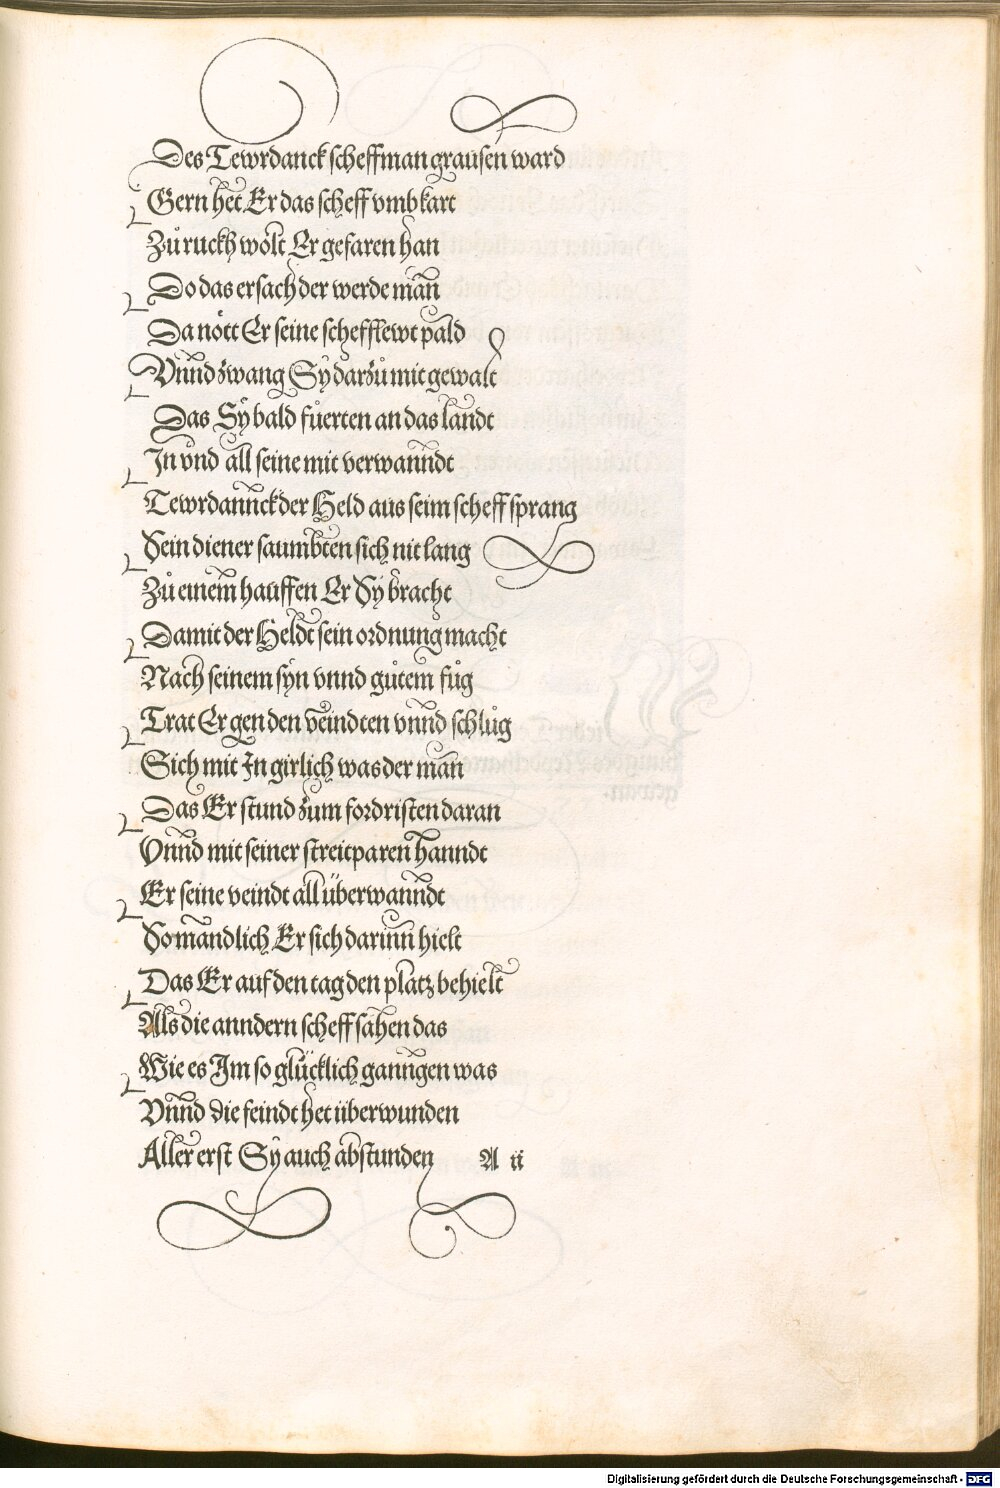 Des Tewrdanck scheffman grausen ward
Gern het Er das scheff vmbkart
Zů ruckh wolt Er gefaren han
Do das ersach der werde man
Da nött Er seine schefflewt pald
Vnnd zwang Sy darzů mit gewalt
Das Sy bald fůerten an das landt
In vnd all seine mit verwanndt
Tewrdannck der Held aus seim scheff sprang
Sein diener saumbten sich nit lang
Zů einem hauffen Er Sy bracht
Damit der Heldt sein ordnung macht
Nach seinem syn vnnd gůtem fůg
Trat Er gen den veindten vnnd schlůg
Sich mit In girlich was der man
Das Er stund zum fordristen daran
Vnnd mit seiner streitparen hanndt
Er seine veindt all überwanndt
So mandlich Er sich darinn hielt
Das Er auf den tag den platz behielt
Als die anndern scheff sahen das
Wie es Im so glücklich ganngen was
Vnnd die feindt het überwunden
Aller erst Sy auch abstunden A ii
Digitalisierung gefördert durch die Deutsche Forschungsgemeinschaft - DFG